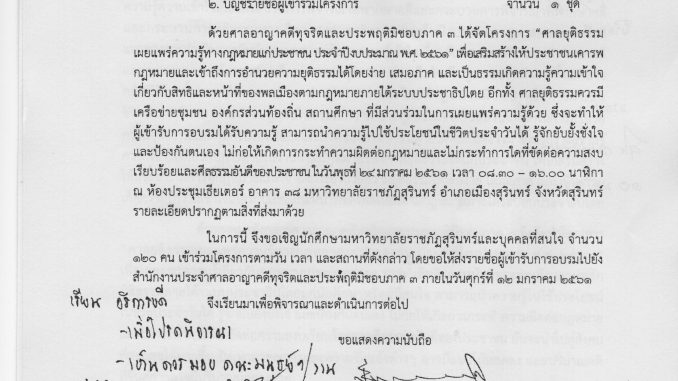 ๒. บัญชีรายชื่อผู้เข้าร่วมโครงการ จำนวน ๑ ชุด
ด้วยศาลอาญาคดีทุจริตและประพฤติมิชอบภาค ๓ ได้จัดโครงการ “ศาลยุติธรรม
เผยแพร่ความรู้ทางกฎหมายแก่ประชาชน ประจำปีงบประมาณ พ.ศ. ๒๕๖๑” เพื่อเสริมสร้างให้ประชาชนเคารพ
กฎหมายและเข้าถึงการอำนวยความยุติธรรมได้โดยง่าย เสมอภาค และเป็นธรรมเกิดความรู้ความเข้าใจ
เกี่ยวกับสิทธิและหน้าที่ของพลเมืองตามกฎหมายภายใต้ระบบประชาธิปไตย อีกทั้ง ศาลยุติธรรมควรมี
เครือข่ายชุมชน องค์กรส่วนท้องถิ่น สถานศึกษา ที่มีส่วนร่วมในการเผยแพร่ความรู้ด้วย ซึ่งจะทำให้
ผู้เข้ารับการอบรมได้รับความรู้ สามารถนำความรู้ไปใช้ประโยชน์ในชีวิตประจำวันได้ รู้จักยับยั้งชั่งใจ
และป้องกันตนเอง ไม่ก่อให้เกิดการกระทำความผิดต่อกฎหมายและไม่กระทำการใดที่ขัดต่อความสงบ
เรียบร้อยและศีลธรรมอันดีของประชาชน ในวันพุธที่ ๒๔ มกราคม ๒๕๖๑ เวลา ๐๘.๓๐ – ๑๖.๐๐ นาฬิกา
ณ ห้องประชุมเธียเตอร์ อาคาร ๓๘ มหาวิทยาลัยราชภัฏสุรินทร์ อำเภอเมืองสุรินทร์ จังหวัดสุรินทร์
รายละเอียดปรากฏตามสิ่งที่ส่งมาด้วย
ในการนี้ จึงขอเชิญนักศึกษามหาวิทยาลัยราชภัฏสุรินทร์และบุคคลที่สนใจ จำนวน
๑๒๐ คน เข้าร่วมโครงการตามวัน เวลา และสถานที่ดังกล่าว โดยขอให้ส่งรายชื่อผู้เข้ารับการอบรมไปยัง
สำนักงานประจำศาลอาญาคดีทุจริตและประพฤติมิชอบภาค ๓ ภายในวันศุกร์ที่ ๑๒ มกราคม ๒๕๖๑
เรียน อธิการบดี
จึงเรียนมาเพื่อพิจารณาและดำเนินการต่อไป
-เพื่อโปรดพิจารณา
ขอแสดงความนับถือ
-เห็นควรมอบ